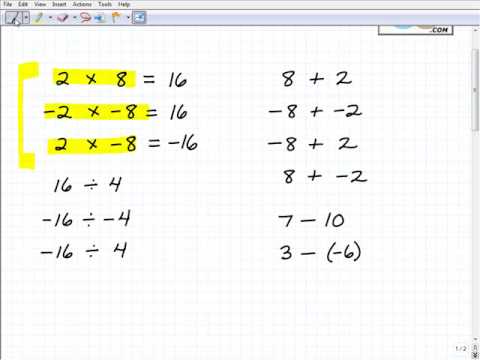 File Edit View Insert Actions Tools Help
.COM
2 × 8 = 16
-2 × -8 = 16
2 × -8 = -16
16 ÷ 4
-16 ÷ -4
-16 ÷ 4
8 + 2
-8 + -2
-8 + 2
8 + -2
7 - 10
3 - (-6)
1/2